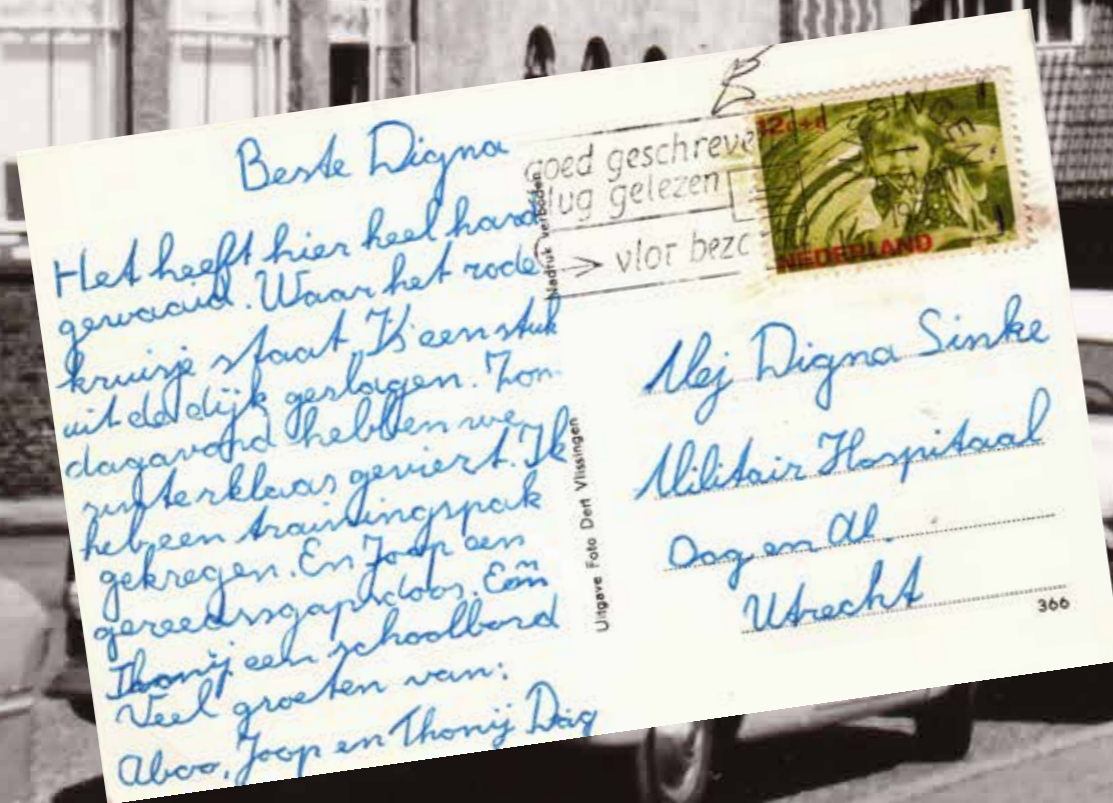 Beste Digna
Het heeft hier heel hard
gewaaid. Waar het rode
kruisje staat, Is een stuk
uit de dijk geslagen. Zon-
dagavond hebben we
sinterklaas geviert. Ik
heb een trainingspak
gekregen. En Joop een
gereedsgapsdoos. En
Thonij een schoolbord
Veel groeten van:
Abco, Joop en Thonij Dag
Nadruk verboden
Uitgave Foto Dert Vlissingen
goed geschreve
lug gelezen
vlot bezo
NEDERLAND
Mej Digna Sinke
Militair Hospitaal
Oog en Al.
Utrecht
366